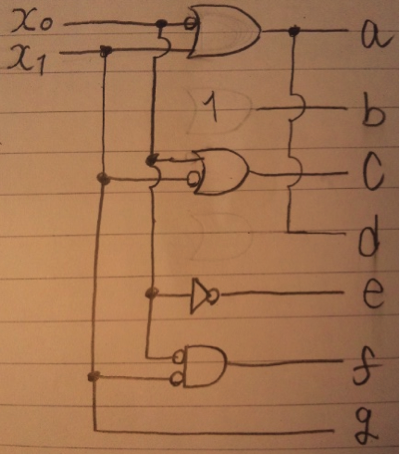 x₀
x₁
a
1
b
c
d
e
f
g